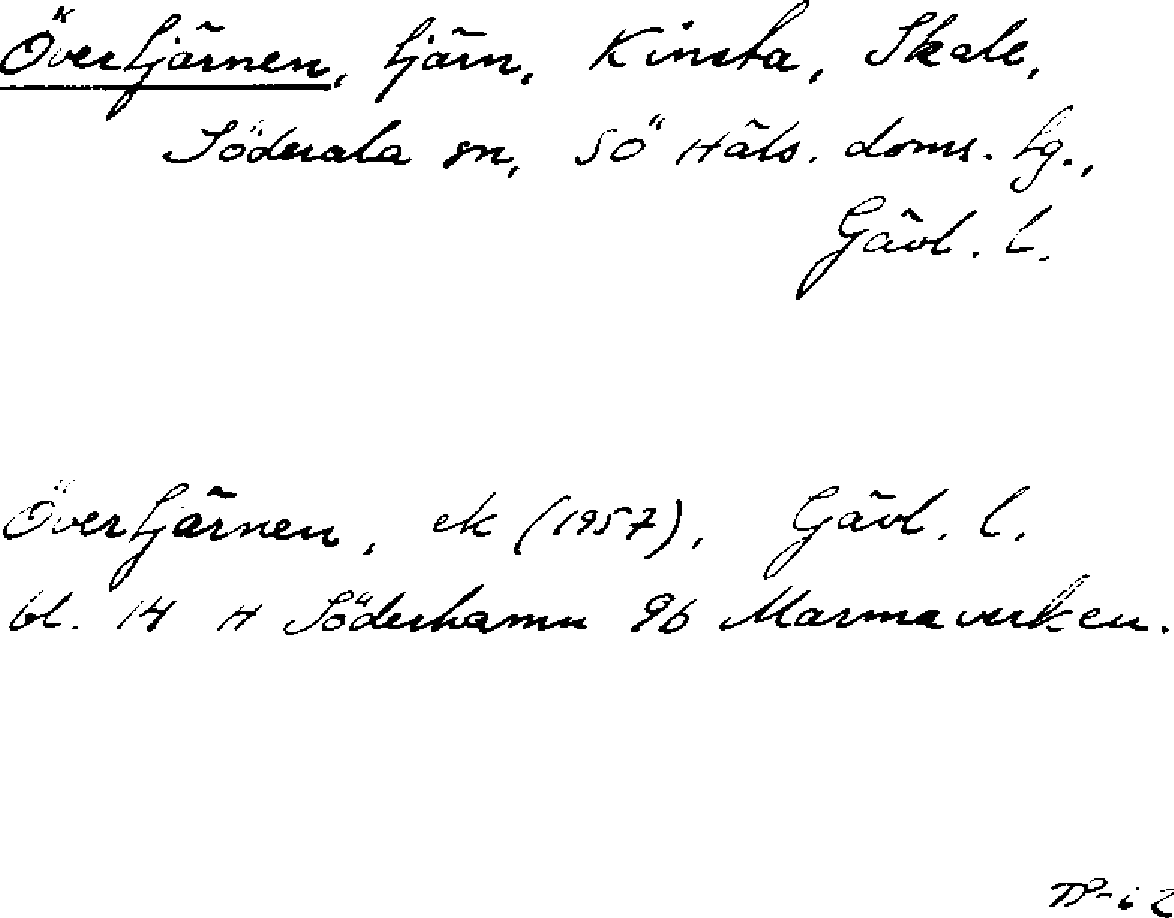 Övertjärnen, tjärn, Kinsta, Skale,
Söderala sn, SÖ Häls. doms. tg.,
Gävl. l.
Övertjärnen, ek (1957), Gävl. l.
bl. 14 H Söderhamn 9b Marmaverken.